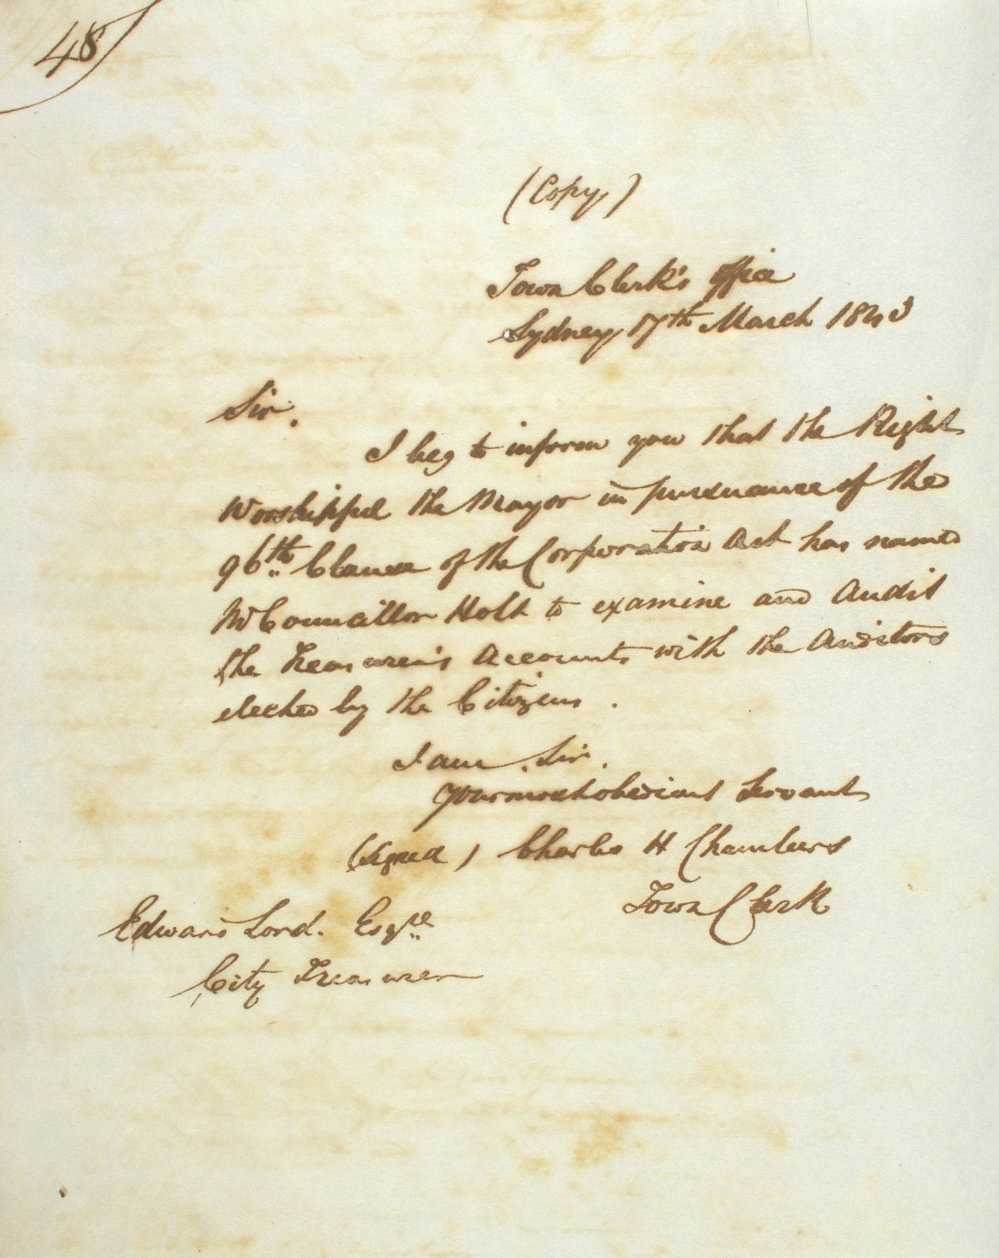 48
(Copy)
Town Clerk's Office
Sydney 17th March 1843
Sir,
I beg to inform you that the Right
Worshipful the Mayor in pursuance of the
96th Clause of the Corporation Act has named
Mr Councillor Holt to examine and Audit
the Treasurer's Accounts with the Auditors
elected by the Citizens.
I am, Sir,
Your most obedient Servant
(signed) Charles H Chambers
Town Clerk
Edward Lord. Esqre
City Treasurer